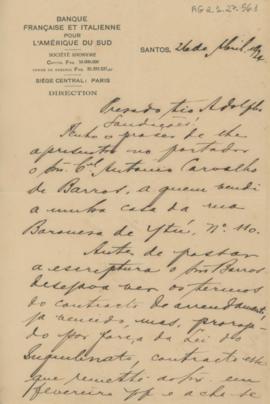 AG2.2.27.561
BANQUE
FRANÇAISE ET ITALIENNE
POUR
L'AMÉRIQUE DU SUD
SOCIÉTÉ ANONYME
SIÈGE CENTRAL: PARIS
DIRECTION
SANTOS, 26 de Abril
Presado tio Adolpho
Saudações
Tenho o prazer de lhe
apresentar no portador
o Snr. Cel. Antonio Carvalho
de Barros, a quem vendi
a minha casa da rua
Baronesa de Ytú, Nº 110.
Antes de passar
a escriptura o Snr. Barros
desejava ver os termos
do contracto de arrendamento,
já vencido mas, proroga-
do por força da Lei do
Inquilinato, contracto este
que remetti em
fevereiro pp e acha-se